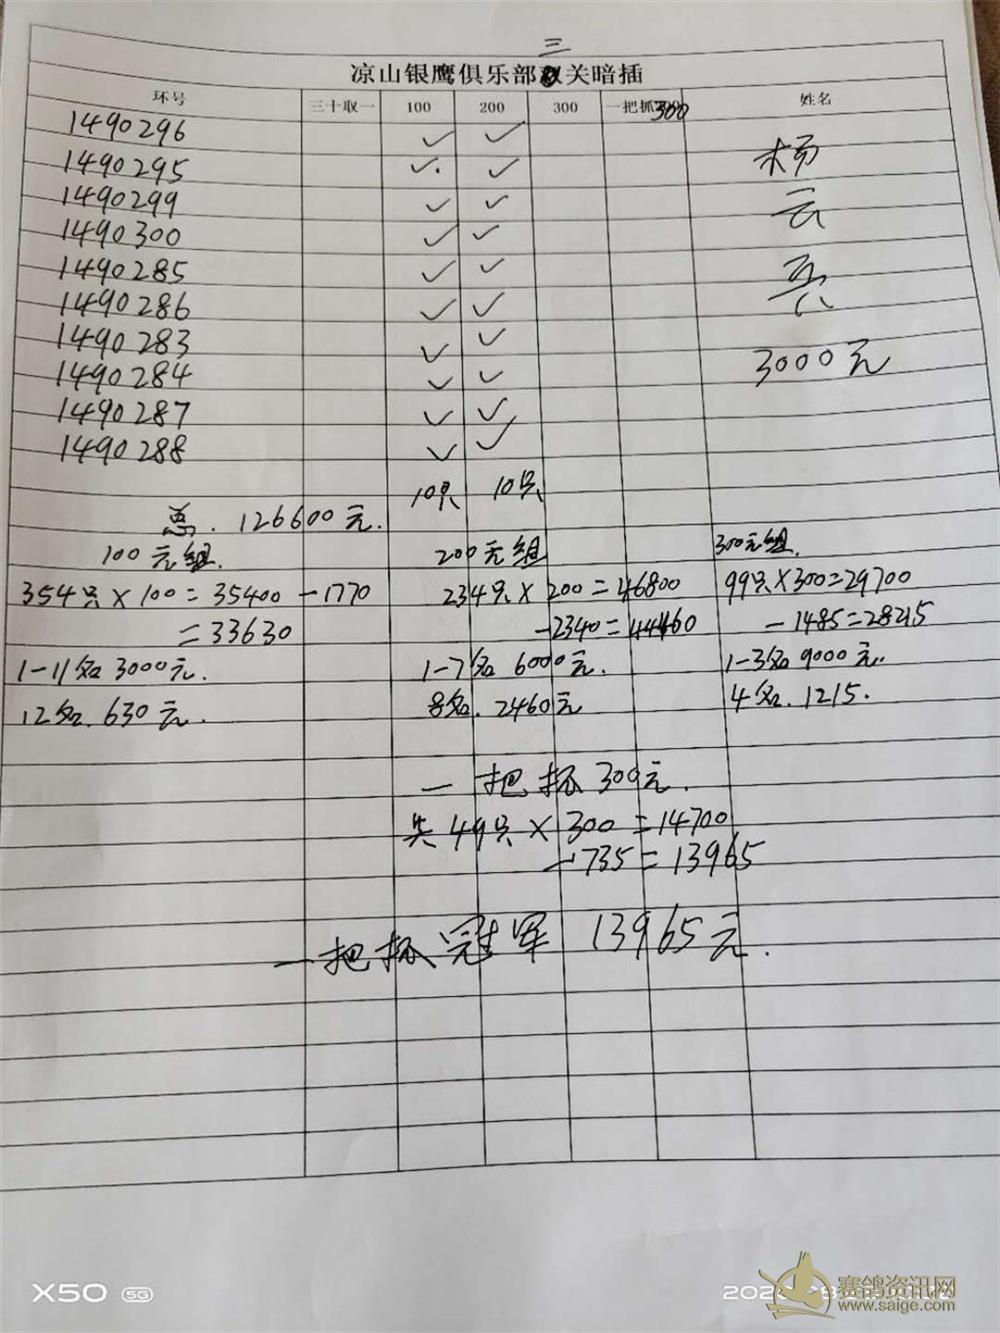 三
凉山银鹰俱乐部关暗插
环号 三十取一 100 200 300 一把抓300 姓名
1490296
1490295
1490299
1490300
1490285
1490286
1490283
1490284
1490287
1490288
杨
云
亮
3000元
10只 10只
总.126600元.
100元组. 200元组 300元组.
354只×100=35400-1770 234只×200=46800 99只×300=29700
=33630 -2340=44460 -1485=28215
1-11名3000元. 1-7名 6000元. 1-3名9000元.
12名.630元. 8名.2460元 4名.1215.
一把抓300元.
共49只×300=14700
-735=13965
一把抓冠军 13965元.
X50 5G
赛鸽资讯网
www.saige.com